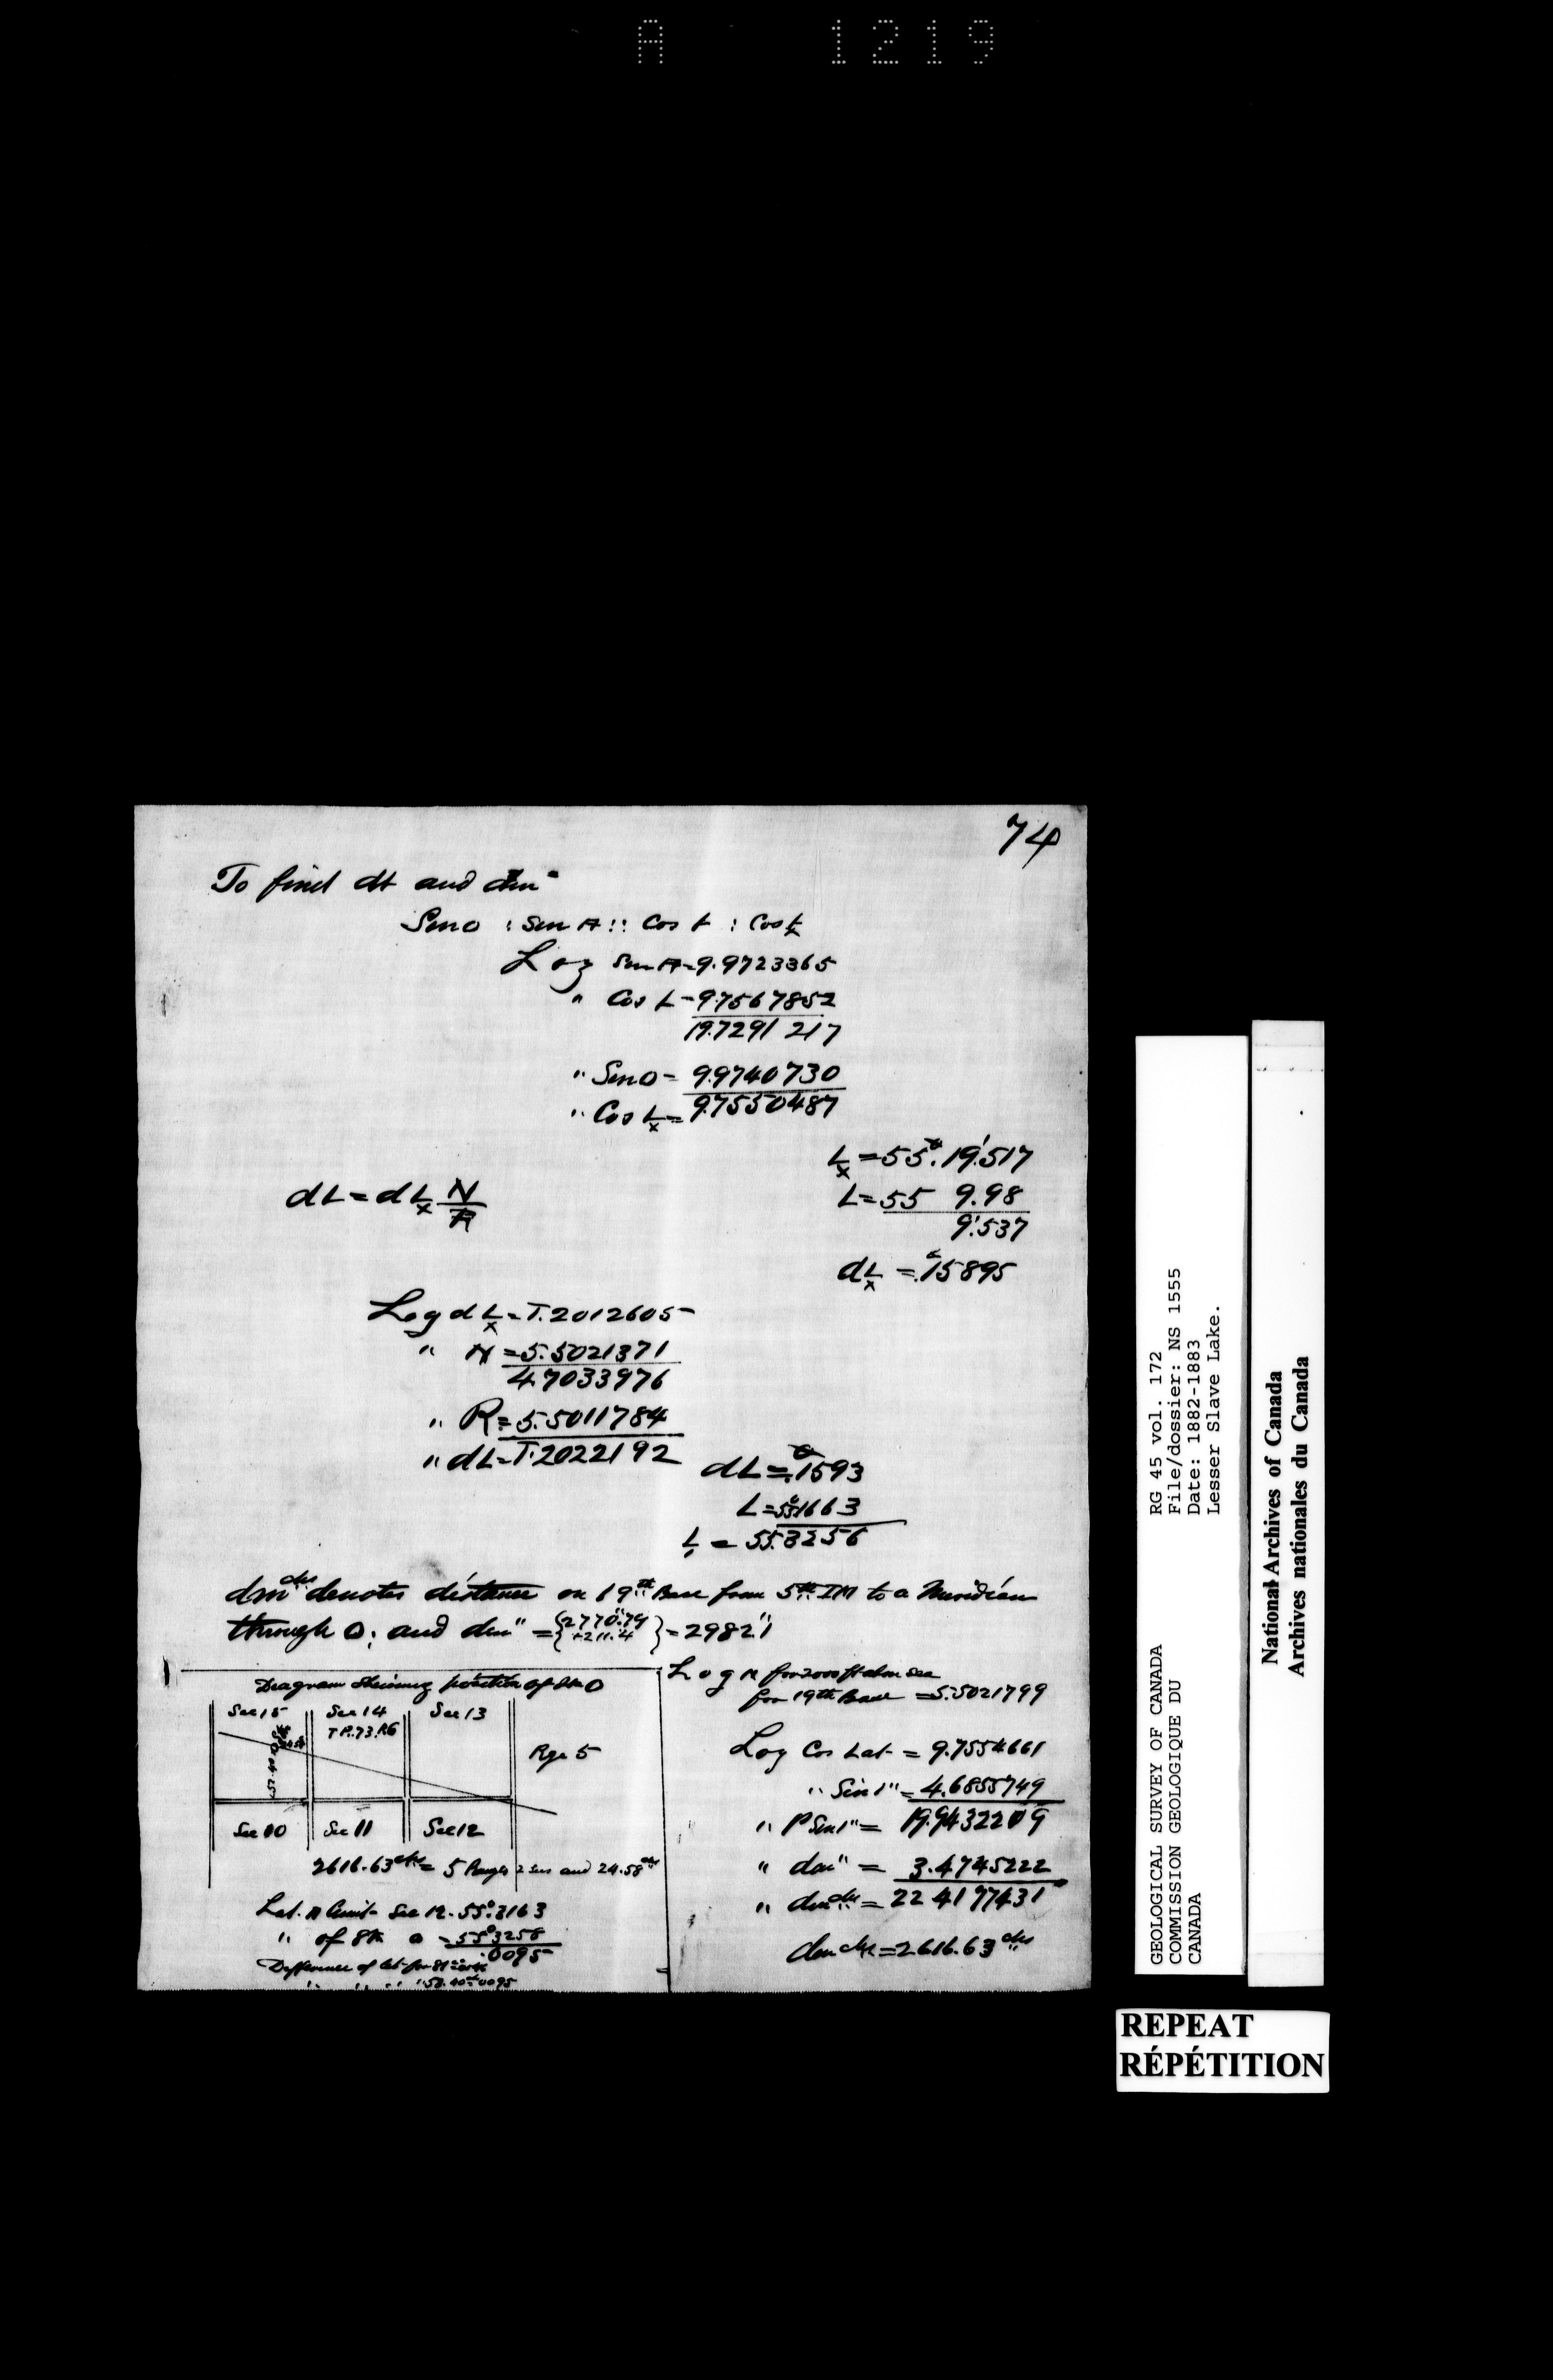 A 1219
74
To find dL and dm"
Sin O : Sin A :: Cos L : Cos Lx
Log Sin A = 9.9723365
" Cos L = 9.7567852
19.7291217
" Sin O = 9.9740730
" Cos Lx = 9.7550487
Lx = 55°.19'.517
L = 55 9.98
9'.537
dLx = .°15895
dL = dLx N/R
Log dLx = T.2012605
" N = 5.5021371
4.7033976
" R = 5.5011784
" dL = T.2022192
dL = .°1593
L = 55°.1663
L, = 55.3256
dm chs denotes distance on 19th Base from 5th IM to a Meridian
through O; and dm" = {2770".79 + 211.4} = 2982".1
Diagram Shewing position of Stn O
Sec 15 Sec 14 Sec 13
TP.73.R6
Rge 5
Sec 10 Sec 11 Sec 12
2616.63 chs = 5 Ranges 2 Secs and 24.58 chs
Lat. N limit Sec 12 = 55°.3163
" of Stn O = 55°3258
.0095
Difference of lat for 81
" " " " 58.40 = 0095
Log N for 2000 ft above sea
for 19th Base = 5.5021799
Log Cos Lat = 9.7554661
" Sin 1" = 4.6855749
" P Sin 1" = 19.9432209
" dm" = 3.4745222
" dm chs = 22 4177431
dm chs = 2616.63 chs
GEOLOGICAL SURVEY OF CANADA
COMMISSION GEOLOGIQUE DU
CANADA
RG 45 vol. 172
File/dossier: NS 1555
Date: 1882-1883
Lesser Slave Lake.
National Archives of Canada
Archives nationales du Canada
REPEAT
RÉPÉTITION